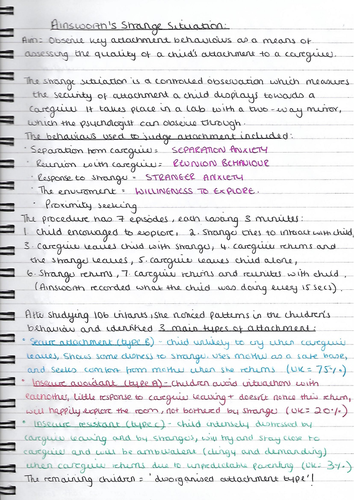 AINSWORTH'S Strange Situation:
Aim: Observe key attachment behaviours as a means of
assessing the quality of a child's attachment to a caregiver.
The strange situation is a controlled observation which measures
the security of attachment a child displays towards a
caregiver. It takes place in a lab with a two-way mirror,
which the psychologist can observe through.
The behaviours used to judge attachment included:
· Separation from caregiver = SEPARATION ANXIETY
· Reunion with caregiver = REUNION BEHAVIOUR
· Response to strange = STRANGER ANXIETY
· The environment = WILLINGNESS TO EXPLORE.
· Proximity seeking
The procedure has 7 episodes, each lasting 3 minutes:
1. Child encouraged to explore, 2. Stranger tries to interact with child,
3. caregiver leaves child with stranger, 4. caregiver returns and
the stranger leaves, 5. caregiver leaves child alone,
6. Stranger returns, 7. Caregiver returns and reunites with child.
(Ainsworth recorded what the child was doing every 15 secs).
After studying 106 infants, she noticed patterns in the children's
behaviour and identified 3 main types of attachment:
· Secure attachment (type B) - child unlikely to cry when caregiver
leaves, shows some distress to stranger. Uses mother as a safe base,
and seeks comfort from mother when she returns (UK = 75%)
· Insecure avoidant (type A) - Children avoid interaction with
little response to caregiver leaving + doesn't notice their return,
will happily explore the room, not bothered by stranger (UK = 20%)
· Insecure resistant (type C) - Child intensely distressed by
caregiver leaving and by stranger, will try and stay close to
caregiver and will be ambivalent (clingy and demanding)
when caregiver returns due to unpredictable parenting (UK = 3%).
The remaining children = 'disorganised attachment type'!